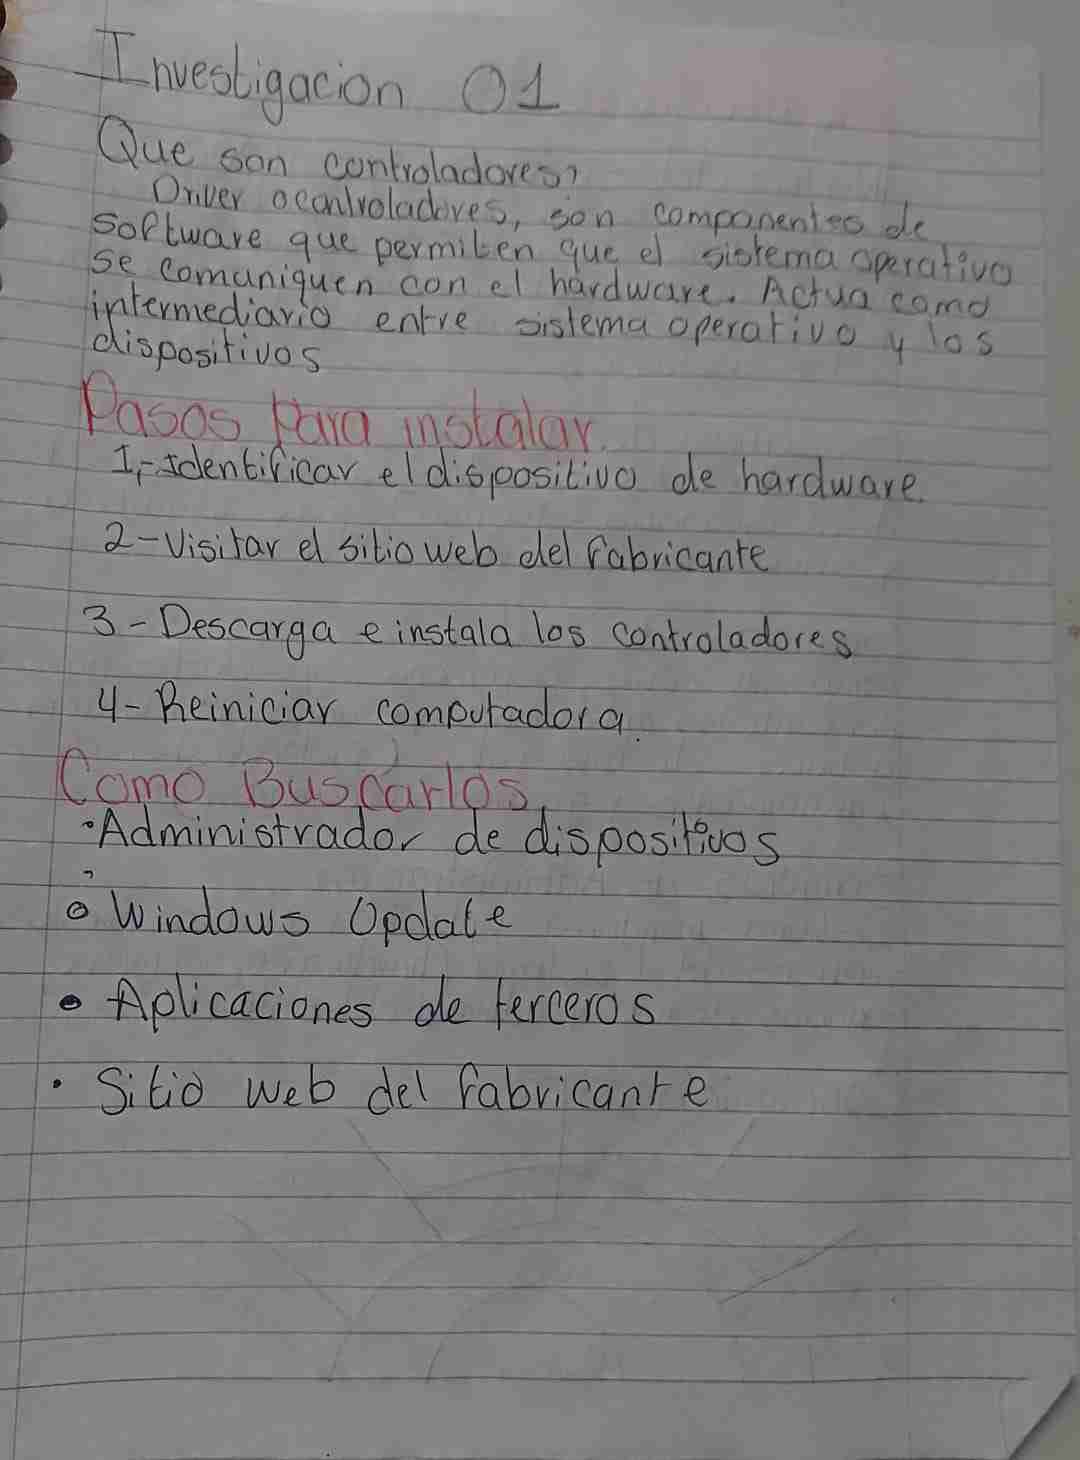 Investigacion 01
Que son controladores?
Driver o controladores, son componentes de
Software que permiten que el sistema operativo
se comuniquen con el hardware. Actua como
intermediario entre sistema operativo y los
dispositivos
Pasos para instalar.
1,-Identificar el dispositivo de hardware.
2-Visitar el sitio web del fabricante
3-Descarga e instala los controladores
4-Reiniciar computadora.
Como Buscarlos.
•Administrador de dispositivos
• Windows Update
• Aplicaciones de terceros
• Sitio web del fabricante